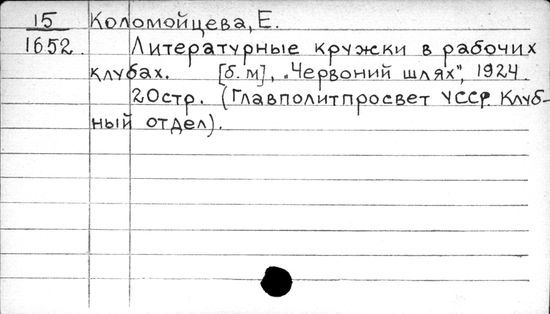 15 Коломойцева, Е.
1652. Литературные кружки в рабочих
клубах. [б.м], „Червоний шлях", 1924.
20стр. (Главполитпросвет УССР. Клуб-
ный отдел).